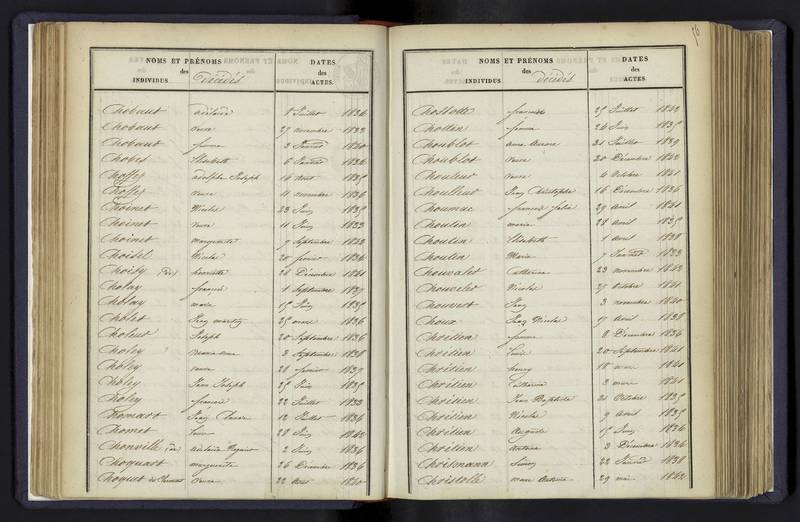 NOMS ET PRÉNOMS DATES
des décédés des
INDIVIDUS. ACTES.
Chobaut adélaïde 8 Juillet 1836
Chobaut veuve 27 novembre 1833
Chobaut femme 3 1840
Chobes Elisabeth 6 1836
Choffey adolphe Joseph 14 aout 1835
Choffey veuve 11 novembre 1836
Choinet Nicolas 23 Juin 1835
Choinet veuve 11 Juin 1833
Choinet marguerite 9 Septembre 1842
Choisel Nicolas 20 février 1836
Choisy (de) henriette 24 Décembre 1841
Cholay francois 1 Septembre 1837
Cholay marie 15 Juin 1835
Cholet 25 mars 1836
Choleur Joseph 20 Septembre 1836
Choley marie anne 3 Septembre 1838
Choley veuve 28 février 1837
Choley Jean Joseph 25 Juin 1835
Choley francois 22 Juillet 1833
Chomart 12 Juillet 1836
Chomet 28 Juin 1842
Chonville (de) 2 Juin 1836
Choquart marguerite 26 Décembre 1836
Choquet veuve 22 1840
56
NOMS ET PRÉNOMS DATES
des décédés des
INDIVIDUS. ACTES.
Chostotte francois 25 Juillet 1842
Chotin femme 26 Juin 1835
Choublot anne Aurore 31 Juillet 1839
Choublot veuve 20 Décembre 1842
Chouleur veuve 4 Octobre 1841
Choulleur Jean Christophe 16 Décembre 1836
Choumac francois 29 avril 1841
Choulin maria 28 avril 1835
Choulin Elisabeth 1 avril 1838
Choulin Marie 7 1833
Chouvalet Catherine 23 novembre 1842
Chouvelet Nicolas 27 Octobre 1841
Chouvert Jean 3 novembre 1840
Choux Jean Nicolas 17 avril 1838
Chrétien femme 8 Décembre 1836
Chrétien Louis 20 Septembre 1841
Chrétien henry 18 mai 1841
Chrétien Catherine 3 mars 1841
Chrétien Jean Baptiste 21 Octobre 1835
Chrétien Nicolas 9 avril 1835
Chrétien Auguste 15 Juin 1836
Chrétien Antoine 3 Décembre 1836
Chrismann Simon 22 1838
Christolle marc Antoine 29 mai 1842